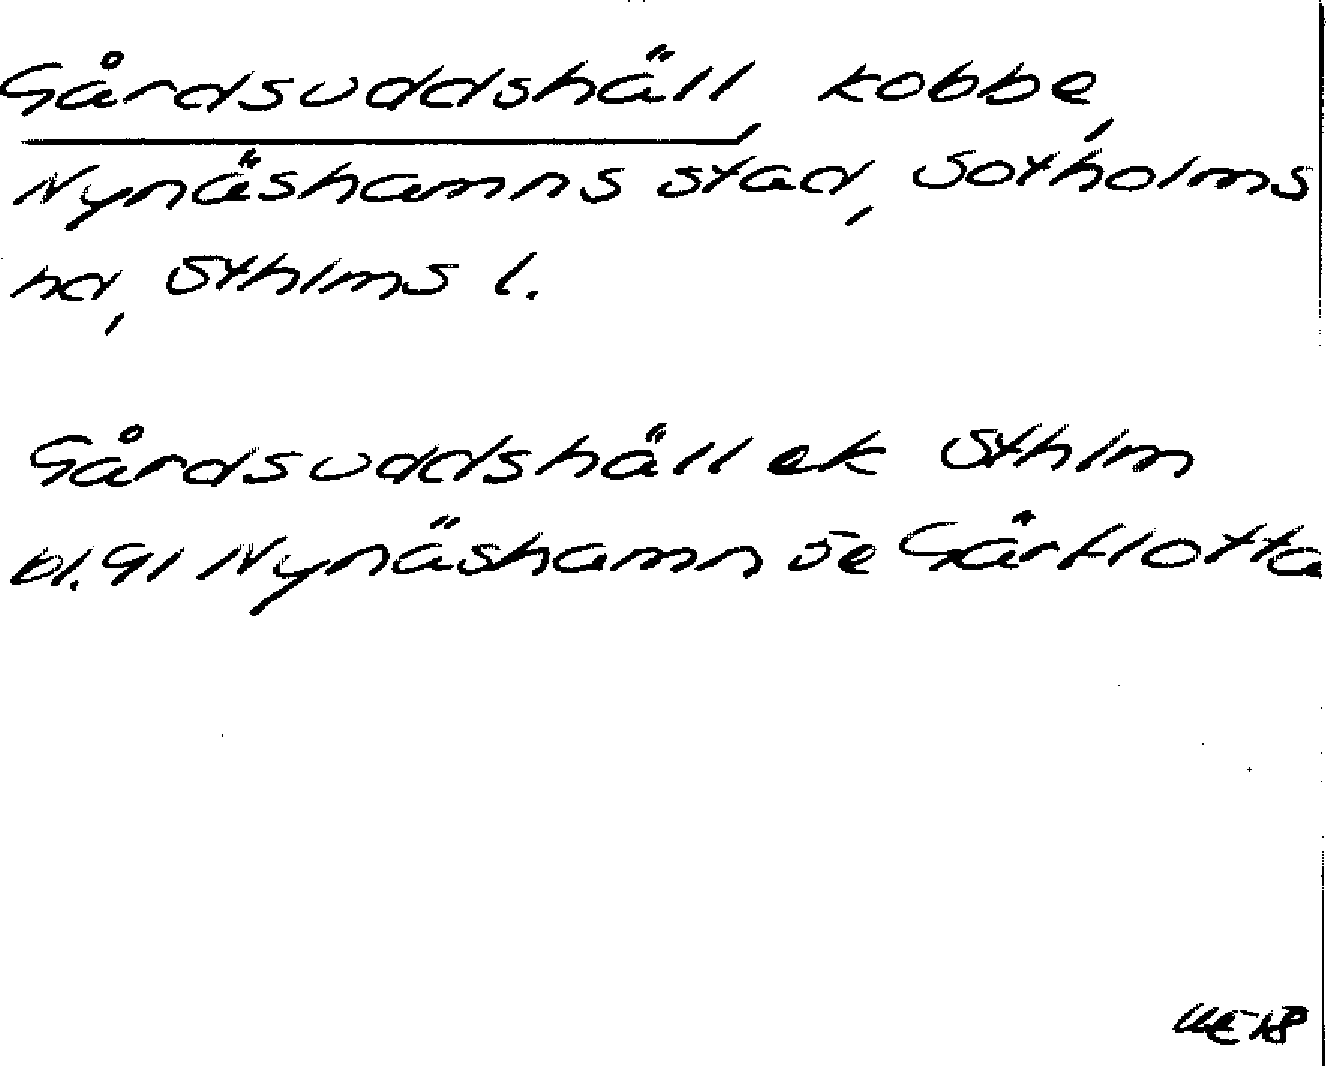 Gårdsuddshäll, kobbe,
Nynäshamns stad, Sotholms
hd, Sthlms l.
Gårdsuddshäll ek Sthlm
bl. 91 Nynäshamn Se Gårflotta